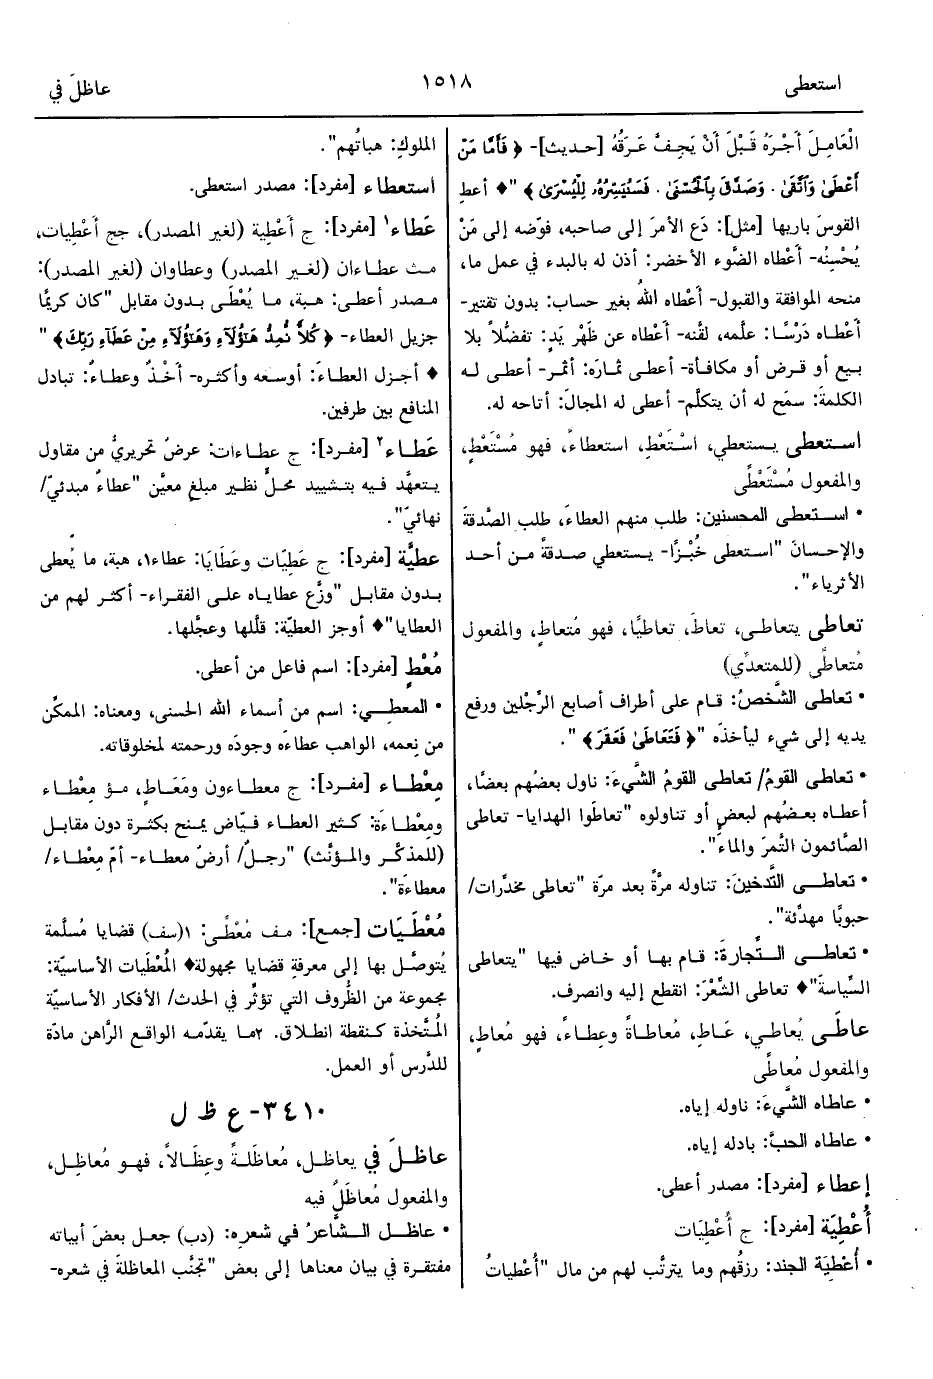 استعطى
١٥١٨
عاظلَ في
الْعَامِلَ أَجْرَهُ قَبْلَ أَنْ يَجِفَّ عَرَقُهُ [حديث]- ﴿ فَأَمَّا مَنْ
أَعْطَىٰ وَٱتَّقَىٰ. وَصَدَّقَ بِٱلْحُسْنَىٰ. فَسَنُيَسِّرُهُۥ لِلْيُسْرَىٰ ﴾ "♦ أعطِ
القوسَ باريها [مثل]: دَع الأمرَ إلى صاحبه، فوّضه إلى مَنْ
يُحْسِنُه- أعْطاه الضَّوء الأخضر: أذن له بالبدء في عمل ما،
منحه الموافقة والقبول- أعْطاه اللهُ بغير حساب: بدون تقتير-
أعْطاه دَرْسًا: علّمه، لقَّنه- أعْطاه عن ظَهْر يَدٍ: تفضُّلاً بلا
بيع أو قرض أو مكافأة- أعطى ثمارَه: أثمر- أعطى له
الكلمةَ: سمَح له أن يتكلَّم- أعطى له المجالَ: أتاحه له.
استعطى يستعطي، اسْتَعْطِ، استعطاءً، فهو مُسْتَعْطٍ،
والمفعول مُسْتَعْطًى
• استعطى المحسنين: طلب منهم العطاءَ، طلب الصَّدقةَ
والإحسانَ "استعطى خُبْزًا- يستعطي صدقةً من أحد
الأثرياء".
تعاطى يتعاطى، تعاطَ، تعاطيًا، فهو مُتعاطٍ، والمفعول
مُتعاطًى (للمتعدِّي)
• تعاطى الشَّخصُ: قام على أطراف أصابع الرِّجْلين ورفع
يديه إلى شيء ليأخذَه "﴿ فَتَعَاطَىٰ فَعَقَرَ ﴾ ".
• تعاطى القومُ/ تعاطى القومُ الشَّيءَ: ناول بعضُهم بعضًا،
أعطاه بعضُهم لبعضٍ أو تناولوه "تعاطَوا الهدايا- تعاطى
الصَّائمون التَّمرَ والماءَ".
• تعاطى التَّدخينَ: تناوله مرَّةً بعد مرّة "تعاطى مخدَّرات/
حبوبًا مهدِّئة".
• تعاطى التِّجارةَ: قام بها أو خاض فيها "يتعاطى
السِّياسةَ"♦ تعاطى الشِّعْرَ: انقطع إليه وانصرف.
عاطَى يُعاطي، عَاطِ، مُعاطاةً وعِطاءً، فهو مُعاطٍ،
والمفعول مُعاطًى
• عاطاه الشَّيءَ: ناوله إياه.
• عاطاه الحبَّ: بادله إياه.
إعطاء [مفرد]: مصدر أعطى.
أُعْطِيَة [مفرد]: ج أُعْطِيَات
• أُعْطِيَة الجند: رزقُهم وما يترتَّب لهم من مال "أُعْطياتُ
الملوكِ: هباتُهم".
استعطاء [مفرد]: مصدر استعطى.
عَطاء١ [مفرد]: ج أعْطِية (لغير المصدر)، جج أعْطِيات،
مث عطاءان (لغير المصدر) وعطاوان (لغير المصدر):
مصدر أعطى: هبة، ما يُعْطَى بدون مقابل "كان كريمًا
جزيل العطاء- ﴿ كُلاًّ نُّمِدُّ هَٰٓؤُلَآءِ وَهَٰٓؤُلَآءِ مِنْ عَطَآءِ رَبِّكَ ﴾ "
♦ أجزل العطاءَ: أوسعه وأكثره- أخْذٌ وعطاءٌ: تبادل
المنافع بين طرفين.
عَطاء٢ [مفرد]: ج عطاءات: عرضٌ تحريريٌّ من مقاول
يتعهَّد فيه بتشييد محلٍّ نظير مبلغٍ معيَّن "عطاءٌ مبدئيّ/
نهائيّ".
عطيَّة [مفرد]: ج عَطِيّات وعَطَايَا: عطاء١، هبة، ما يُعطى
بدون مقابل "وزَّع عطاياه على الفقراء- أكثر لهم من
العطايا"♦ أوجز العطيّة: قلَّلها وعجَّلها.
مُعْطٍ [مفرد]: اسم فاعل من أعطى.
• المعطي: اسم من أسماء الله الحسنى، ومعناه: الممكِّن
من نِعمه، الواهب عطاءَه وجودَه ورحمته لمخلوقاته.
مِعْطاء [مفرد]: ج معطاءون ومَعَاطٍ، مؤ مِعْطاء
ومِعْطاءَة: كثير العطاء فيّاض يمنح بكثرة دون مقابل
(للمذكَّر والمؤنَّث) "رجلٌ/ أرضٌ معطاء- أمّ مِعْطاء/
معطاءَة".
مُعْطَيَات [جمع]: مف مُعْطًى: ١(سف) قضايا مُسلَّمة
يُتوصَّل بها إلى معرفةِ قضايا مجهولة♦ المُعْطَيات الأساسيّة:
مجموعة من الظُّروف التي تؤثِّر في الحدث/ الأفكار الأساسيّة
المُتَّخذة كنقطة انطلاق. ٢ما يقدّمه الواقع الرَّاهن مادّة
للدَّرس أو العمل.
٣٤١٠- ع ظ ل
عاظلَ في يعاظل، مُعاظَلةً وعِظَالاً، فهو مُعاظِل،
والمفعول مُعاظَلٌ فيه
• عاظل الشَّاعرُ في شعره: (دب) جعل بعضَ أبياته
مفتقرة في بيان معناها إلى بعض "تجنَّب المعاظلةَ في شعره-